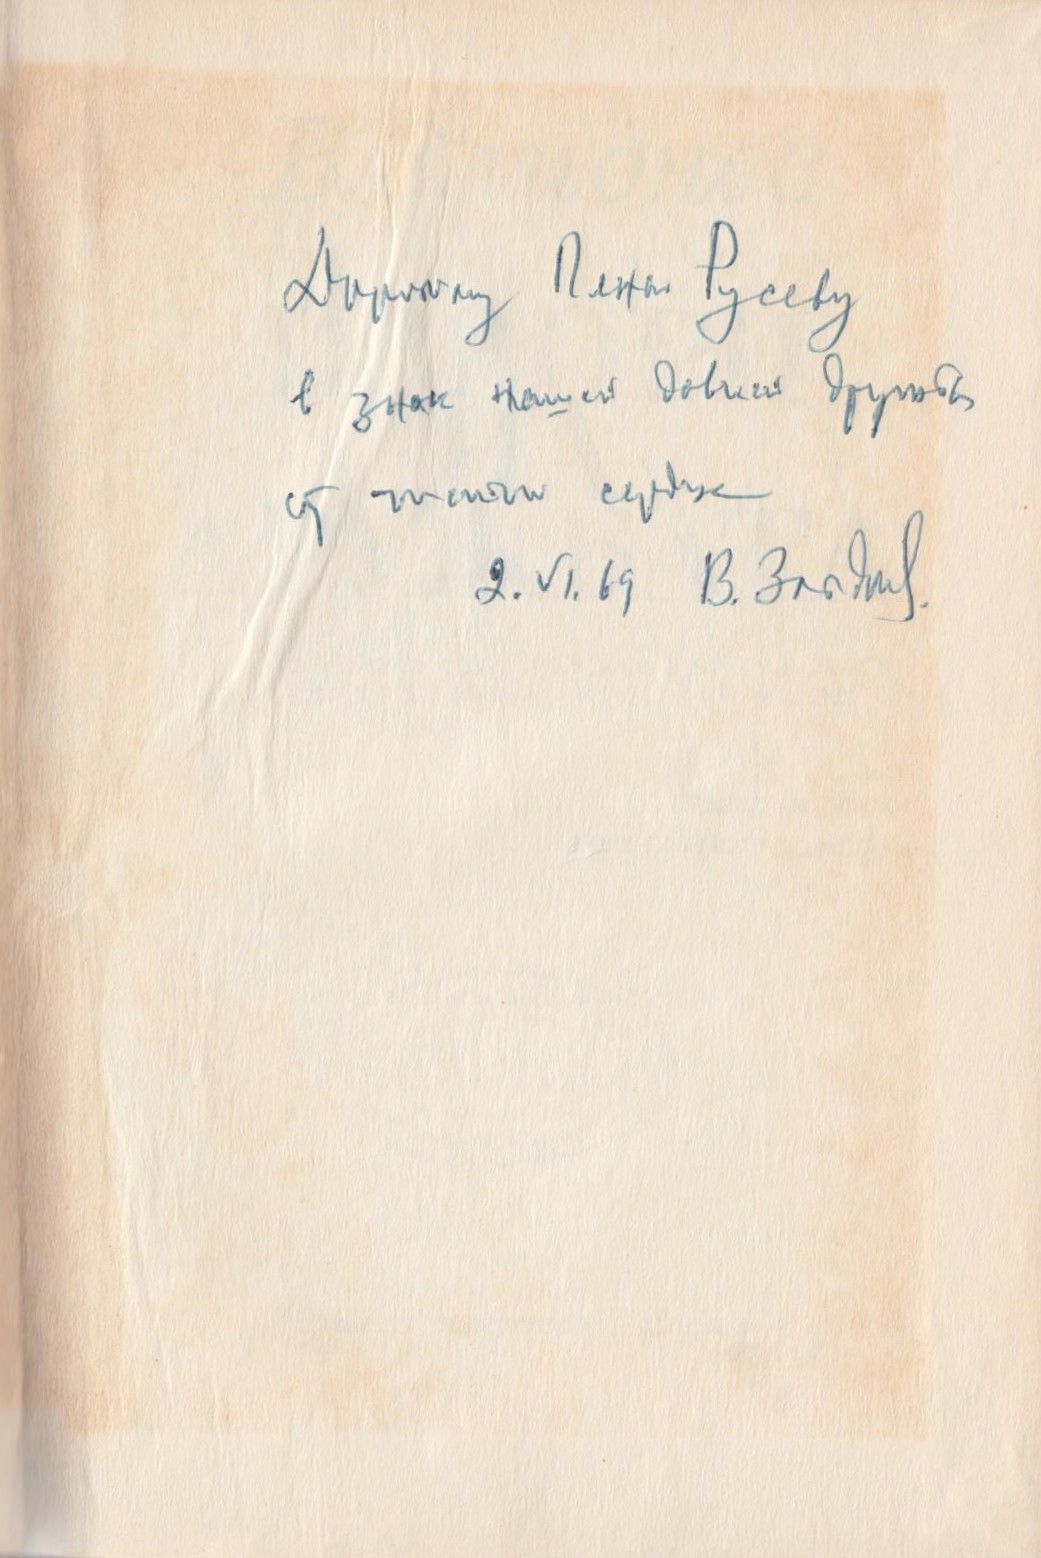 Дорогому Пеню Русеву
в знак нашей давней дружбы
от чистого сердца
2.VI.69 В.